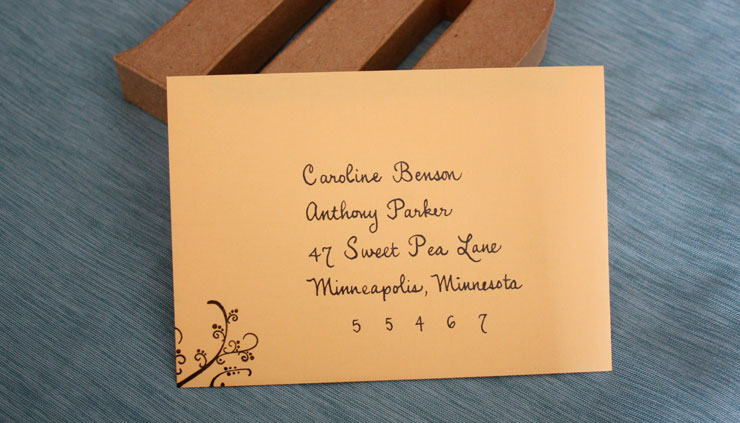 Caroline Benson
Anthony Parker
47 Sweet Pea Lane
Minneapolis, Minnesota
5 5 4 6 7